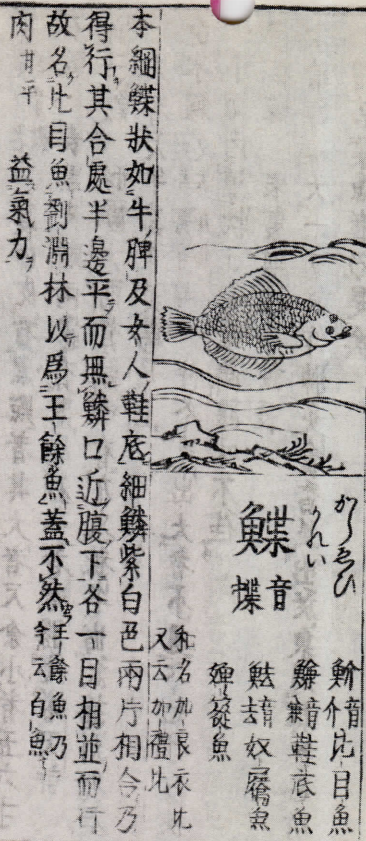 鰈
音蝶
からゑひ
かれい
魪音介 比目魚
鰜音兼 鞋底魚
魼音去 奴屩魚
婢簁魚
和名加良衣比
又云加禮比
本綱鰈狀如牛脾及女人鞋底細鱗紫白色兩片相合乃
得行其合處半邊平而無鱗口近腹下各一目相並而行
故名比目魚劉淵林以爲王餘魚蓋不然王餘魚乃今云白魚
肉甘平 益氣力